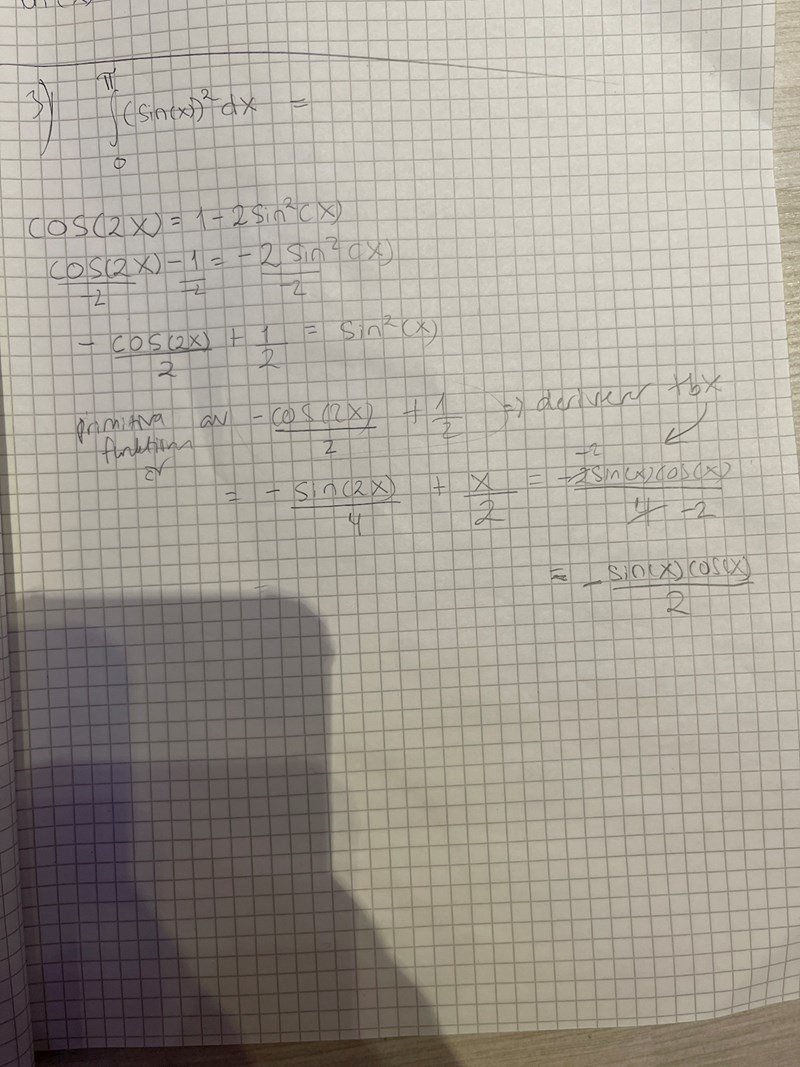 3) ∫₀^π (sin(x))² dx =
cos(2x) = 1 - 2sin²(x)
cos(2x)/-2 - 1/-2 = -2sin²(x)/-2
- cos(2x)/2 + 1/2 = sin²(x)
primitiva funktionen av - cos(2x)/2 + 1/2 =>
är
= - sin(2x)/4 + x/2 = -2sin(x)cos(x)/4 -2
= - sin(x)cos(x)/2